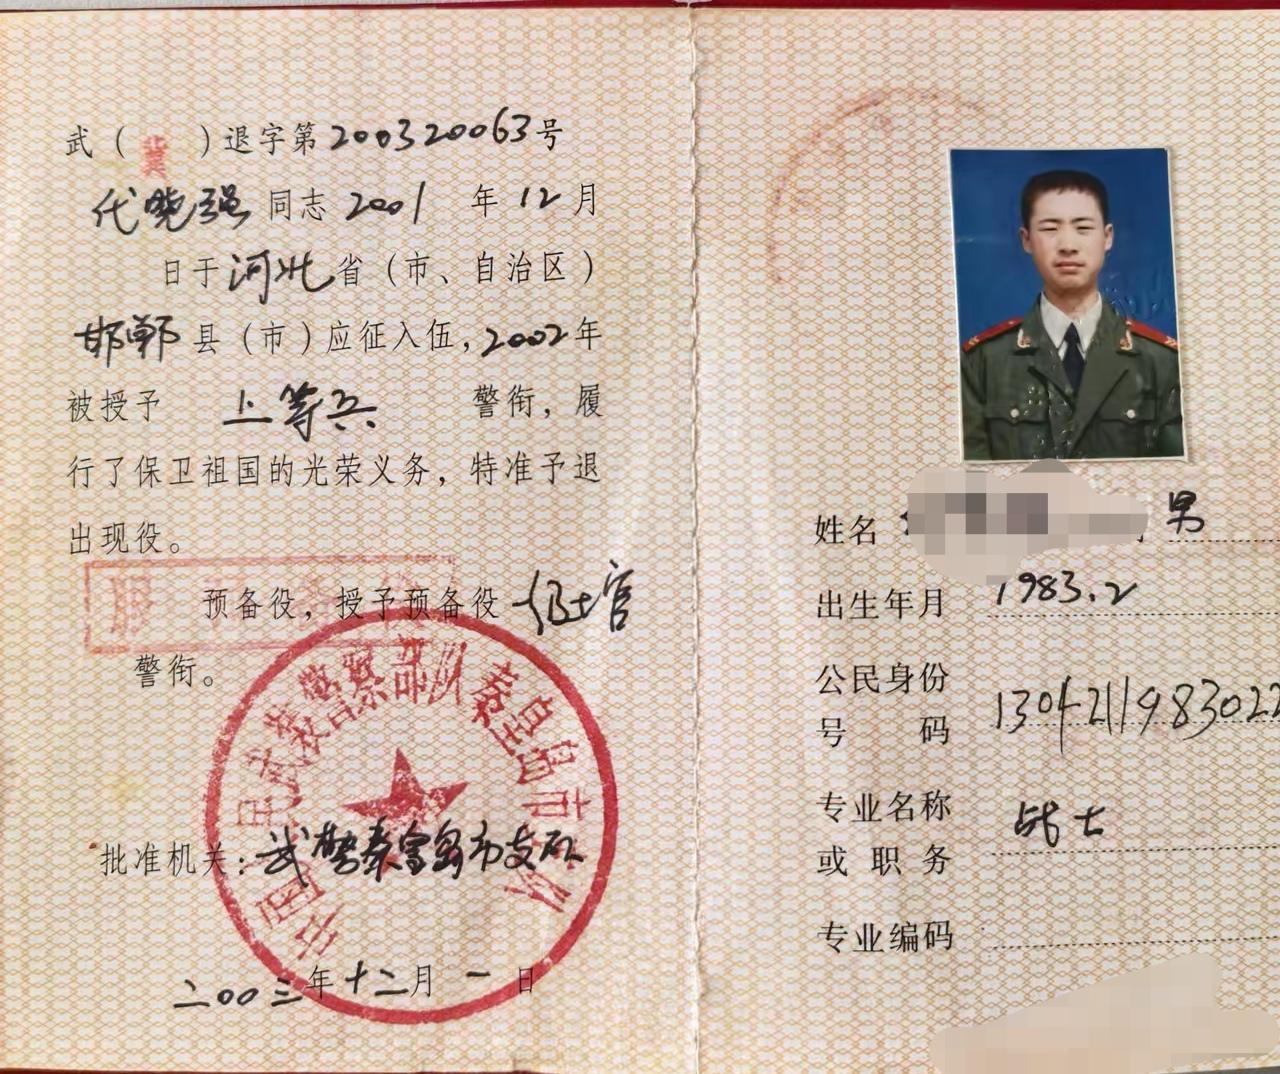 武（冀）退字第200320063号
代晓强同志2001年12月
日于河北省（市、自治区）
邯郸县（市）应征入伍，2002年
被授予 上等兵 警衔，履
行了保卫祖国的光荣义务，特准予退
出现役。
预备役，授予预备役
警衔。
中国人民武装警察部队秦皇岛市支队
批准机关：武警秦皇岛市支队
二00三年十二月一日
姓名 男
出生年月 1983.2
公民身份
号码 1304211983022
专业名称
或职务 战士
专业编码